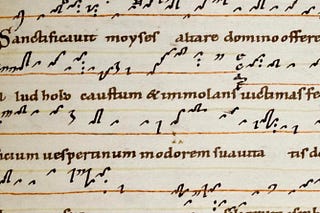 Sanctificavit moyses altare domino offere
lud holo caustum & immolans victimas fe
icium uespertinum inodorem suauita tis d